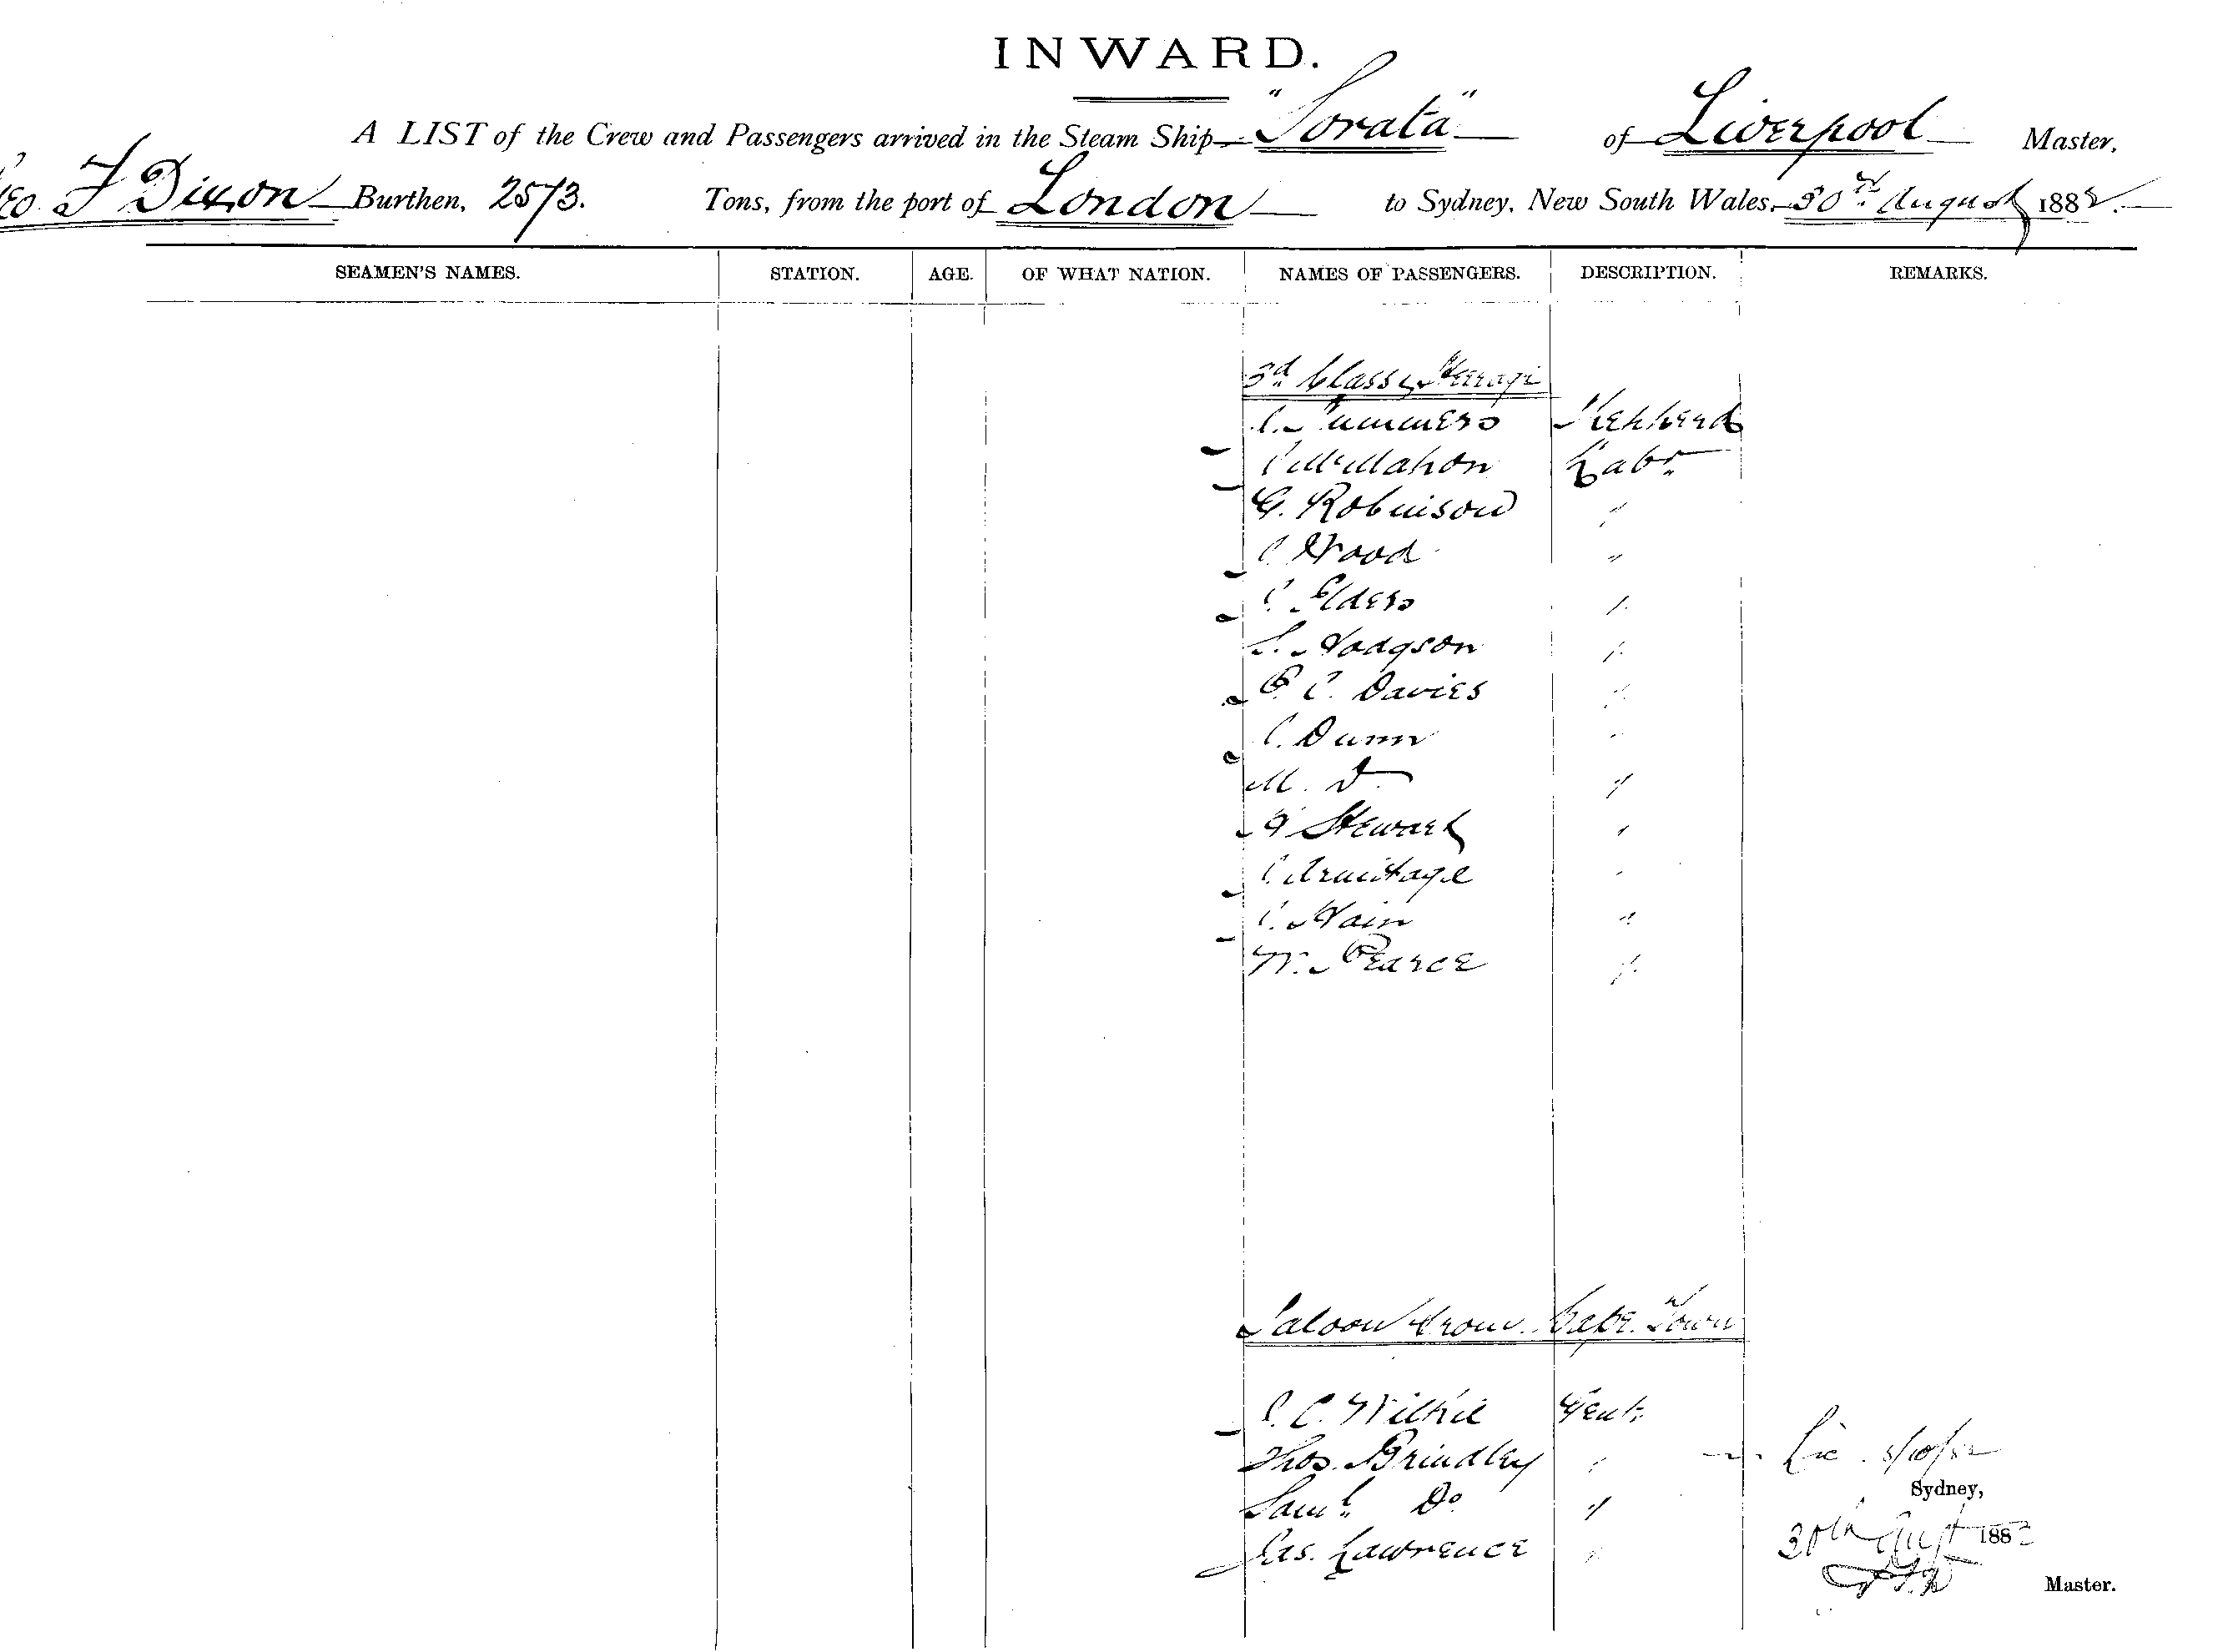 INWARD.
A LIST of the Crew and Passengers arrived in the Steam Ship "Sorata" of Liverpool Master,
Geo. F Dixon Burthen, 2573. Tons, from the port of London to Sydney, New South Wales, 30th August 1882.
SEAMEN'S NAMES. STATION. AGE. OF WHAT NATION. NAMES OF PASSENGERS. DESCRIPTION. REMARKS.
3d Class & Steerage
J. Summers Shepherd
J McMahon Labr
G. Robinson "
J Wood "
J. Elders "
S. Hodgson "
E. J. Davies "
J. Dunn "
M. Do "
H Stewart "
J. Armitage "
J. Hain "
W. Pearce "
Saloon from Cape Town
J. C. Wilkie Gent.
Thos. Brindley "
Saml. Do "
Jas. Lawrence "
Sydney,
30th Augt 1882
Master.